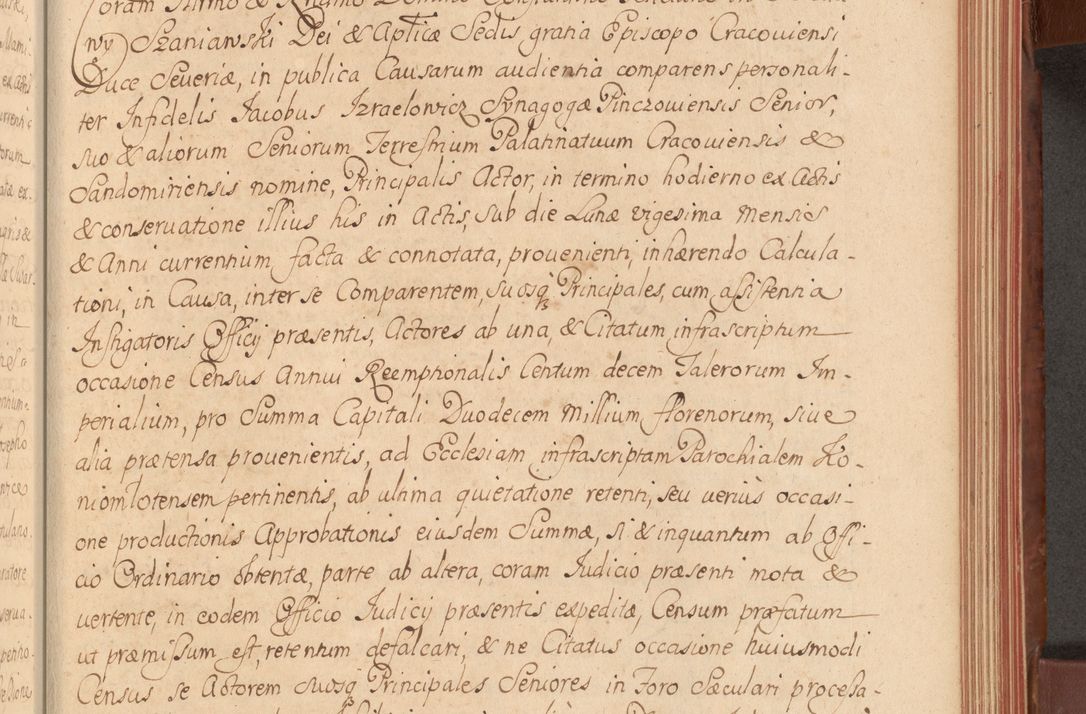 oram Illmo & Rndmo Domino Constantino Feliciano in
wy Szaniawski Dei & Aplicæ Sedis gratia Episcopo Cracouiensi
Duce Seueriæ, in publica Causarum audientia comparens personali-
ter Infidelis Iacobus Izraelowicz Synagogæ Pinczouiensis Senior,
suo & aliorum Seniorum Terrestrium Palatinatuum Cracouiensis &
Sandomiriensis nomine, Principalis Actor, in termino hodierno ex Actis
& conseruatione illius his in Actis, sub die Lunæ vigesima Mensis
& Anni currentium facta & connotata, prouenienti, inhærendo Calcula-
tioni, in Causa, inter se Comparentem, suosq Principales, cum assistentia
Instigatoris Officij præsentis, Actores ab una, & Citatum infrascriptum
occasione Census Annui Reemptionalis Centum decem Talerorum Im-
perialium, pro Summa Capitali Duodecem Millium florenorum, siue
alia prætensa prouenientis, ad Ecclesiam infrascriptam Parochialem Ko-
niomlotensem pertinentis, ab ultima quietatione retenti, seu uerius occasi-
one productionis Approbationis eiusdem Summæ, si & inquantum ab Offi-
cio Ordinario obtentæ, parte ab altera, coram Iudicio præsenti mota &
uertente, in eodem Officio Iudicij præsentis expeditæ, Censum præfatum
ut præmissum est, retentum defalcari, & ne Citatus occasione huiusmodi
Census se Actorem suosq Principales Seniores in Foro Sæculari processa-